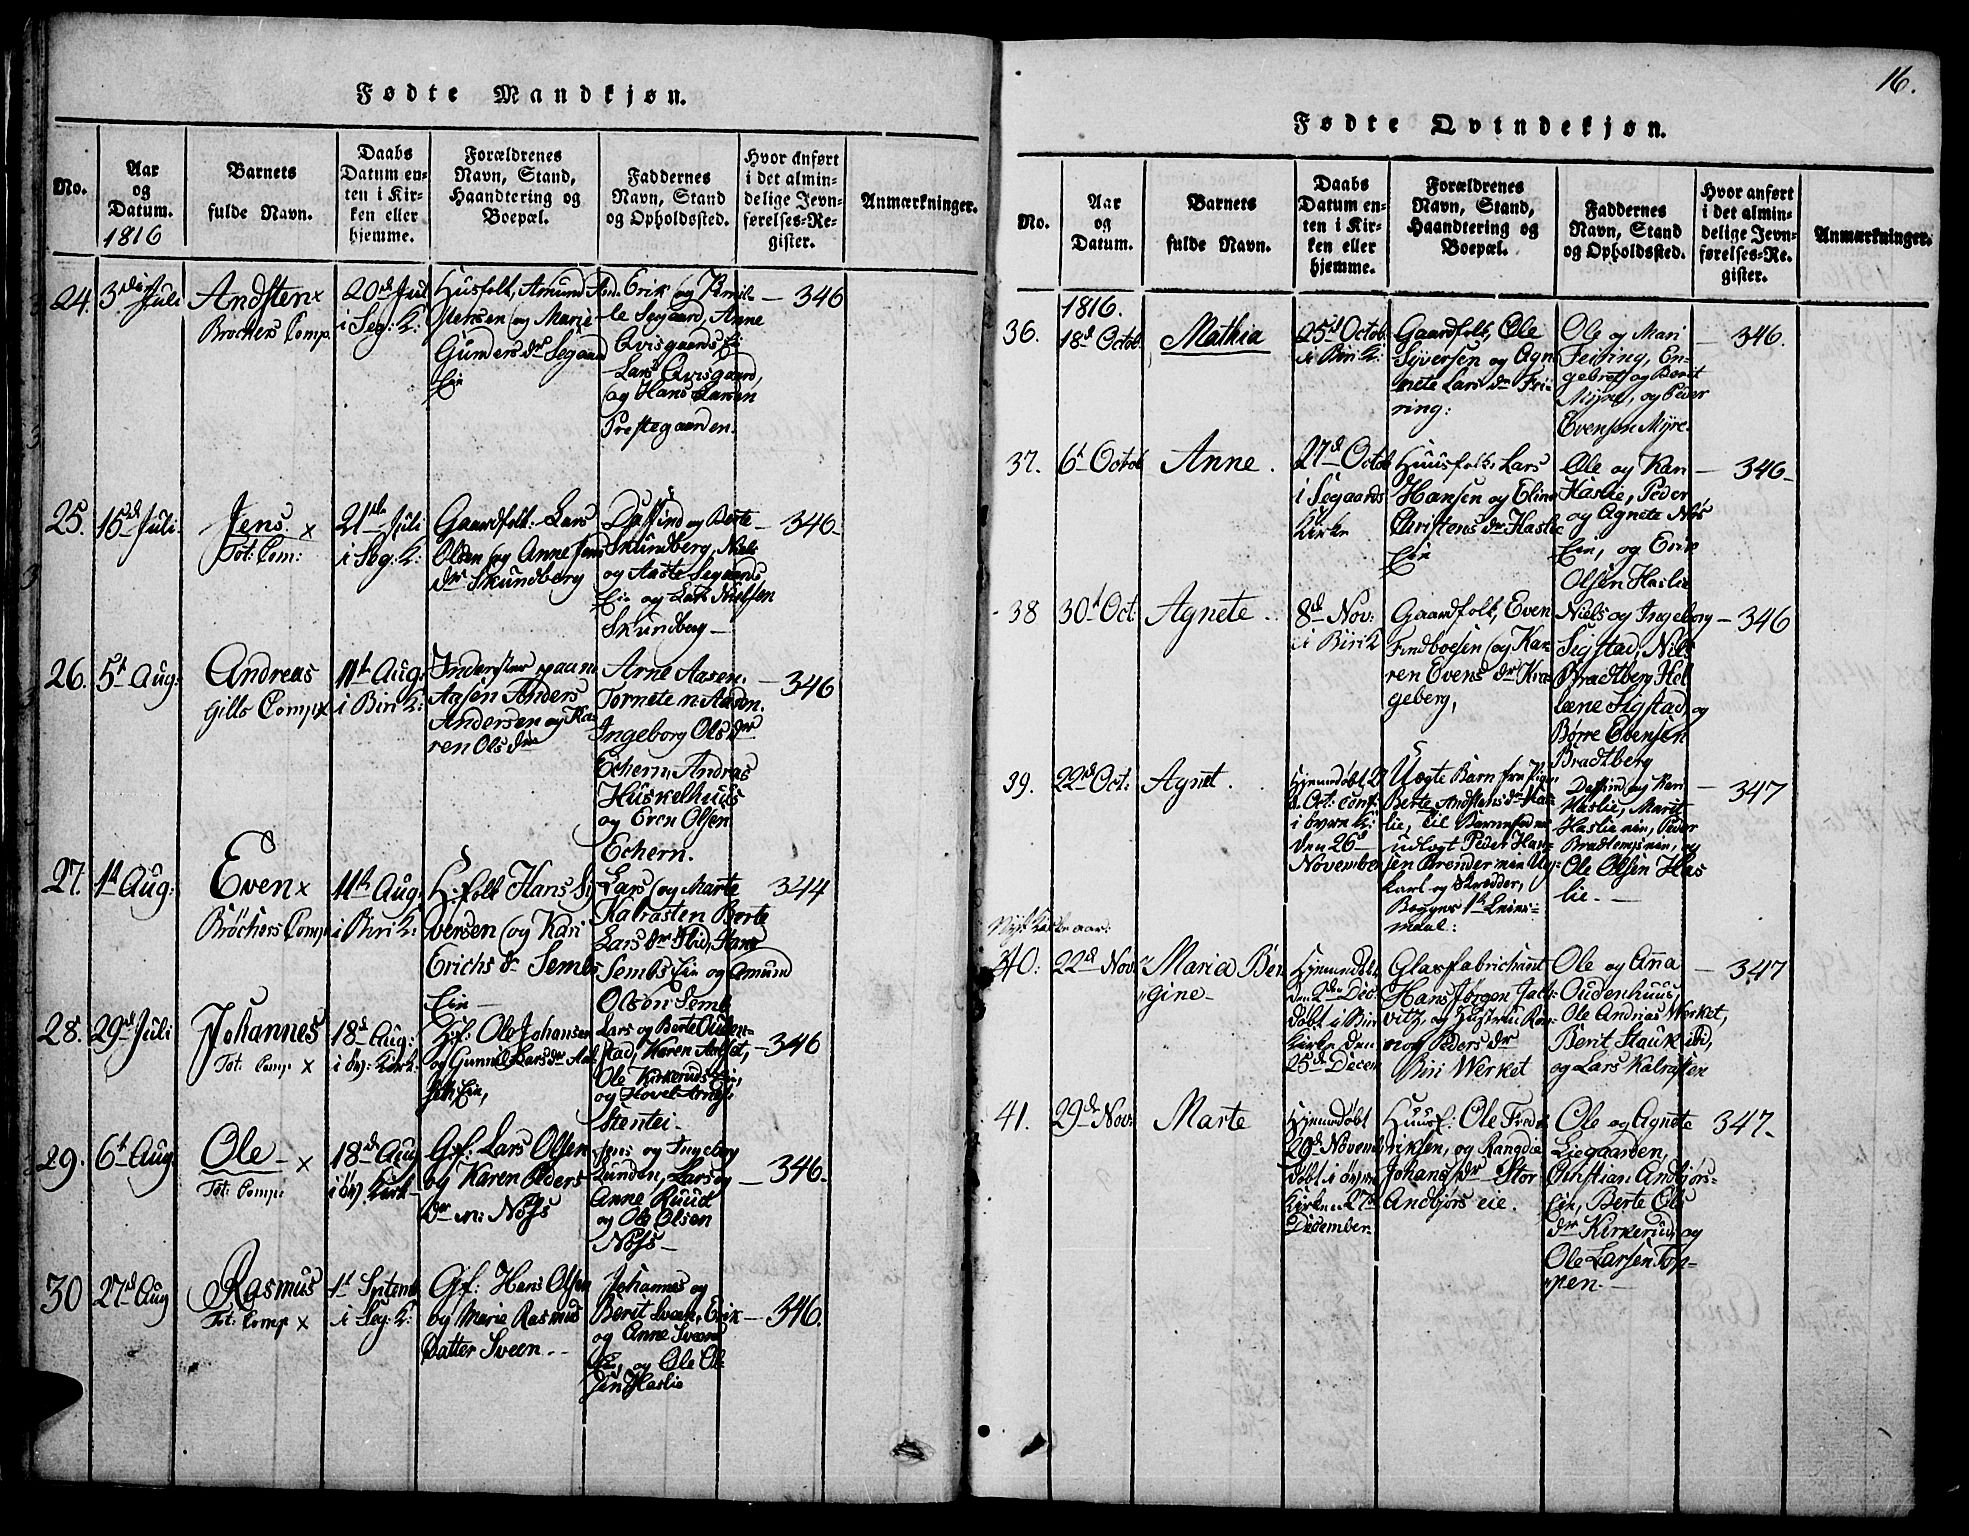 Fødte Mandkjøn.
No.
Aar
og
Datum.
1816
Barnets
fulde Navn.
Daabs
Datum en-
ten i Kir-
ken eller
hjemme.
Forældrenes
Navn, Stand,
Haandtering og
Boepæl.
Faddernes
Navn, Stand
og Opholdssted.
Hvor anført
i det almin-
delige Jevn-
førelses-Re-
gister.
Anmærkninger.
24.
3die Juli
Andsten x
Bröchers Comp.
20de Juli
i Seg: K:
Husfolk, Amund And-
stensen og Marie
Gunders dr Segaard
Eie
Erik og Pernil-
le Segaard, Anne
Qvisgaards Eie
Lars Qvisgaard,
og Hans Larsen
Prestegaarden.
346
25.
15d Juli
Jens. x
Tot: Com:
21de Juli
i Seg: K:
Gaardfolk: Lars
Olsen og Anne Jens
dr Skundberg
Daffind og Berte
Skundberg, Niels
og Aaste Segaards
Eie og Lars Poulsen
Skundberg
346.
26.
5t Aug:
Andreas
Gills Comp x
11th Aug:
i Biri K:
Inderster paa n:
Aasen Anders
Andersen og Ka-
ren Ols dr
Arne Aasen,
Tornete n: Aasen.
Ingeborg Ols dr
Echern, Andras
Huskelhuus
og Even Olsen
Echern.
346
27.
1t Aug:
Even x
Bröchers Comp
11th Aug:
i Biri K:
H: folk Hans Si-
versen og Kari
Erichs dr Sembs
Eie
Lars og Marte
Kalrasten Berte
Lars dr Flid, Hans
Sembs Eie og Amund
Olsen Semb
344
28.
29d Juli
Johannes
Tot: Comp x
18d Aug:
i öv: Kirk:
Hf: Ole Johansen
og Gunnil Lars dr Aal
seth Eie,
Lars og Berte Ouden-
stad, Karen Aalset,
Ole Kirkeruds Eie,
og Hovel Arnes
Stentei.
346
29.
6t Aug
Ole x
Tot: Comp:
18d Aug
i öv: Kirk
Gf: Lars Olsen
og Karen Peders
dr n: Nöss
Jens og Ingeborg
Lunden, Lars og
Anne Ruud
og Ole Olsen
Nöss
346.
30
27d Aug
Rasmus
Tot: Comp x
1t Septemb
i Seg: K:
Gf: Hans Olsen
og Marie Rasmus
Datter Sveen.
Johannes og
Berit Sveen, Erik
og Anne Sveens
Eie, og Ole Ol-
sen Haslie
346.
16.
Fødte Qvindekjøn.
No.
Aar
og
Datum.
Barnets
fulde Navn.
Daabs
Datum en-
ten i Kir-
ken eller
hjemme.
Forældrenes
Navn, Stand,
Haandtering og
Boepæl.
Faddernes
Navn, Stand
og Opholdssted.
Hvor anført
i det almin-
delige Jevn-
førelses-Re-
gister.
Anmærkninger.
1816.
36.
18d Octob.
Mathia
25d Octob.
i Biri K:
Gaardfolk, Ole
Syversen og Agn
nete Lars dr Fei-
ring:
Ole og Mari
Feiring, En-
gebret og Berit
Myre, og Peder
Evensen Myre.
346.
37.
6t Octob
Anne.
27d Octob
i Segaards
Kirke
Huusfolk, Lars
Hansen og Eline
Christens dr Haslie
Eie
Ole og Kari
Haslie, Peder
og Agnete Nös
Eie, og Erik
Olsen Haslie
346.
38
30t Oct:
Agnete
8d Nov:
i Biri K
Gaardfolk, Even
Findboesen og Ka-
ren Evens dr Kra-
geberg,
Niels og Ingeborg
Sigstad, Nils
Bradtberg Hel
læne Sigstad, og
Börre Ebensen
Bradtberg
346
39.
22d Oct:
Agnet.
Hjemmdöbt 27
d. Oct: conf:
i övre K:
den 26d
November
Uægte Barn fra Pigen
Berte Andstens dr Has-
lie, til Barnefader
udlagt Peder Han-
sen Brenderinen Ung-
karl og Skredder,
Begges 1te Leiers-
maal:
Daffind og Kari
Haslie, Marit
Haslie nin, Peder
Bradlemps nin, og
Ole Olsen Has
lie.
347
Nyt Kirkeaar:
40:
22d Nov:
Maria Ber-
gine
Hjemmdöbt
den 2den Dec:
döbt i Biri
Kirke den
25de Decem
Glasfabrichannt
Hans Jörgen Jach-
vitz, og Hustrue Ran-
nog Peders dr
Biri Werket
Ole og Anna
Oudenhuus,
Ole Andrias Werket,
Berit Stauk ibd,
og Lars Kalrasten
347
41.
29de Nov:
Marte
Hjemmdöbt
29d Novemb
döbt i övre
Kirken 27de
December.
Huusf: Ole Fred-
riksen, og Rangdie
Johans dr Stor
Andbjörs eie.
Ole og Agnete
Liegaarden,
Christian Andbjörs-
Eie, Berte Ols
dr Kirkerud, og
Ole Larsen Top-
pen.
347.